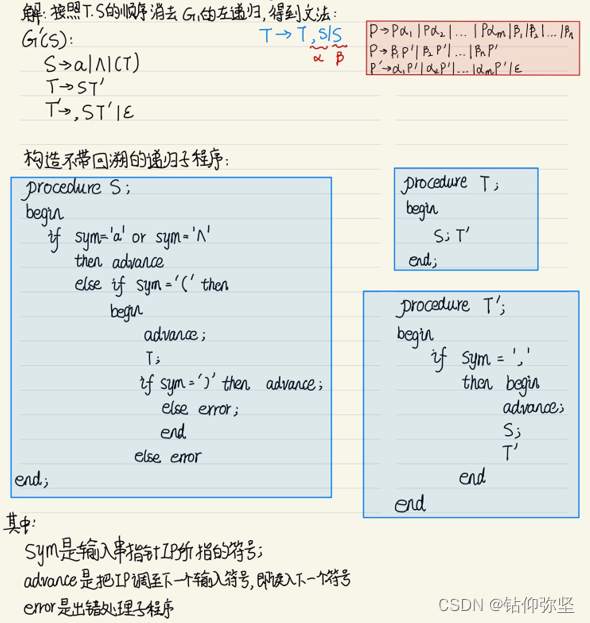 解:按照T.S的顺序消去G₁的左递归,得到文法:
G'(S):
S→a|Λ|(T)
T→ST'
T'→,ST'|ε
T→T,S|S
α β
P→Pα₁|Pα₂|...|Pαm|β₁|β₂|...|βn
P→β₁P'|β₂P'|...|βnP'
P'→α₁P'|α₂P'|...|αmP'|ε
构造不带回溯的递归子程序:
procedure S;
begin
if sym='a' or sym='Λ'
then advance
else if sym='(' then
begin
advance;
T;
if sym=')' then advance;
else error;
end
else error
end;
procedure T;
begin
S; T'
end;
procedure T';
begin
if sym = ','
then begin
advance;
S;
T'
end
end
其中:
sym是输入串指针IP所指的符号;
advance是把IP调至下一个输入符号,即读入下一个符号
error是出错处理子程序
CSDN @钻仰弥坚